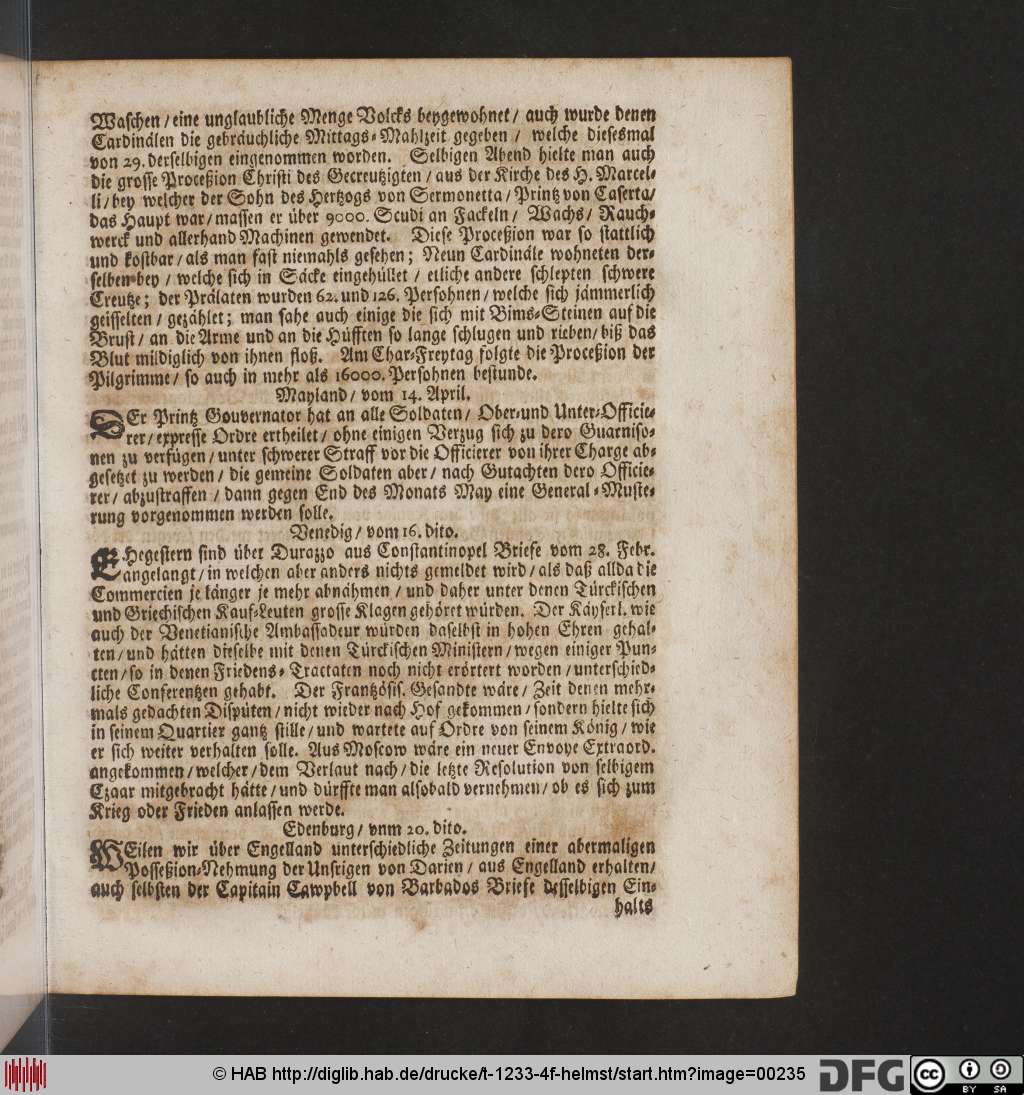 Waschen / eine unglaubliche Menge Volcks beygewohnet / auch wurde denen
Cardinälen die gebräuchliche Mittags-Mahlzeit gegeben / welche diesesmal
von 29. derselbigen eingenommen worden. Selbigen Abend hielte man auch
die grosse Proceßion Christi des Gecreutzigten / aus der Kirche des H. Marcel-
li / bey welcher der Sohn des Hertzogs von Sermonetta / Printz von Caserta /
das Haupt war / massen er über 9000. Scudi an Fackeln / Wachs / Rauch-
werck und allerhand Machinen gewendet. Diese Proceßion war so stattlich
und kostbar / als man fast niemahls gesehen; Neun Cardinäle wohneten der-
selben bey / welche sich in Säcke eingehüllet / etliche andere schlepten schwere
Creutze; der Prälaten wurden 62. und 126. Persohnen / welche sich jämmerlich
geisselten / gezählet; man sahe auch einige die sich mit Bims-Steinen auf die
Brust / an die Arme und an die Hüfften so lange schlugen und rieben / biß das
Blut mildiglich von ihnen floß. Am Char-Freytag folgte die Proceßion der
Pilgrimme / so auch in mehr als 16000. Persohnen bestunde.
Mayland / vom 14. April.
DEr Printz Gouvernator hat an alle Soldaten / Ober-und Unter-Officie-
rer / expresse Ordre ertheilet / ohne einigen Verzug sich zu dero Guarniso-
nen zu verfügen / unter schwerer Straff vor die Officierer von ihrer Charge ab-
gesetzet zu werden / die gemeine Soldaten aber / nach Gutachten dero Officie-
rer / abzustraffen / dann gegen End des Monats May eine General-Muste-
rung vorgenommen werden solle.
Venedig / vom 16. dito.
EHegestern sind über Durazzo aus Constantinopel Briefe vom 28. Febr.
angelangt / in welchen aber anders nichts gemeldet wird / als daß allda die
Commercien je länger je mehr abnähmen / und daher unter denen Türckischen
und Griechischen Kauf-Leuten grosse Klagen gehöret würden. Der Käyserl. wie
auch der Venetianische Ambassadeur würden daselbst in hohen Ehren gehal-
ten / und hätten dieselbe mit denen Türckischen Ministern / wegen einiger Pun-
cten / so in denen Friedens-Tractaten noch nicht erörtert worden / unterschied-
liche Conferentzen gehabt. Der Frantzösis. Gesandte wäre / Zeit denen mehr-
mals gedachten Dispüten / nicht wieder nach Hof gekommen / sondern hielte sich
in seinem Quartier gantz stille / und wartete auf Ordre von seinem König / wie
er sich weiter verhalten solle. Aus Moscow wäre ein neuer Envoye Extraord.
angekommen / welcher / dem Verlaut nach / die letzte Resolution von selbigem
Czaar mitgebracht hätte / und dürffte man alsobald vernehmen / ob es sich zum
Krieg oder Frieden anlassen werde.
Edenburg / vnm 20. dito.
WEilen wir über Engelland unterschiedliche Zeitungen einer abermaligen
Posseßion-Nehmung der Unsrigen von Darien / aus Engelland erhalten /
auch selbsten der Capitain Cawpbell von Barbados Briefe desselbigen Ein-
halts
© HAB http://diglib.hab.de/drucke/t-1233-4f-helmst/start.htm?image=00235
DFG
cc
BY SA